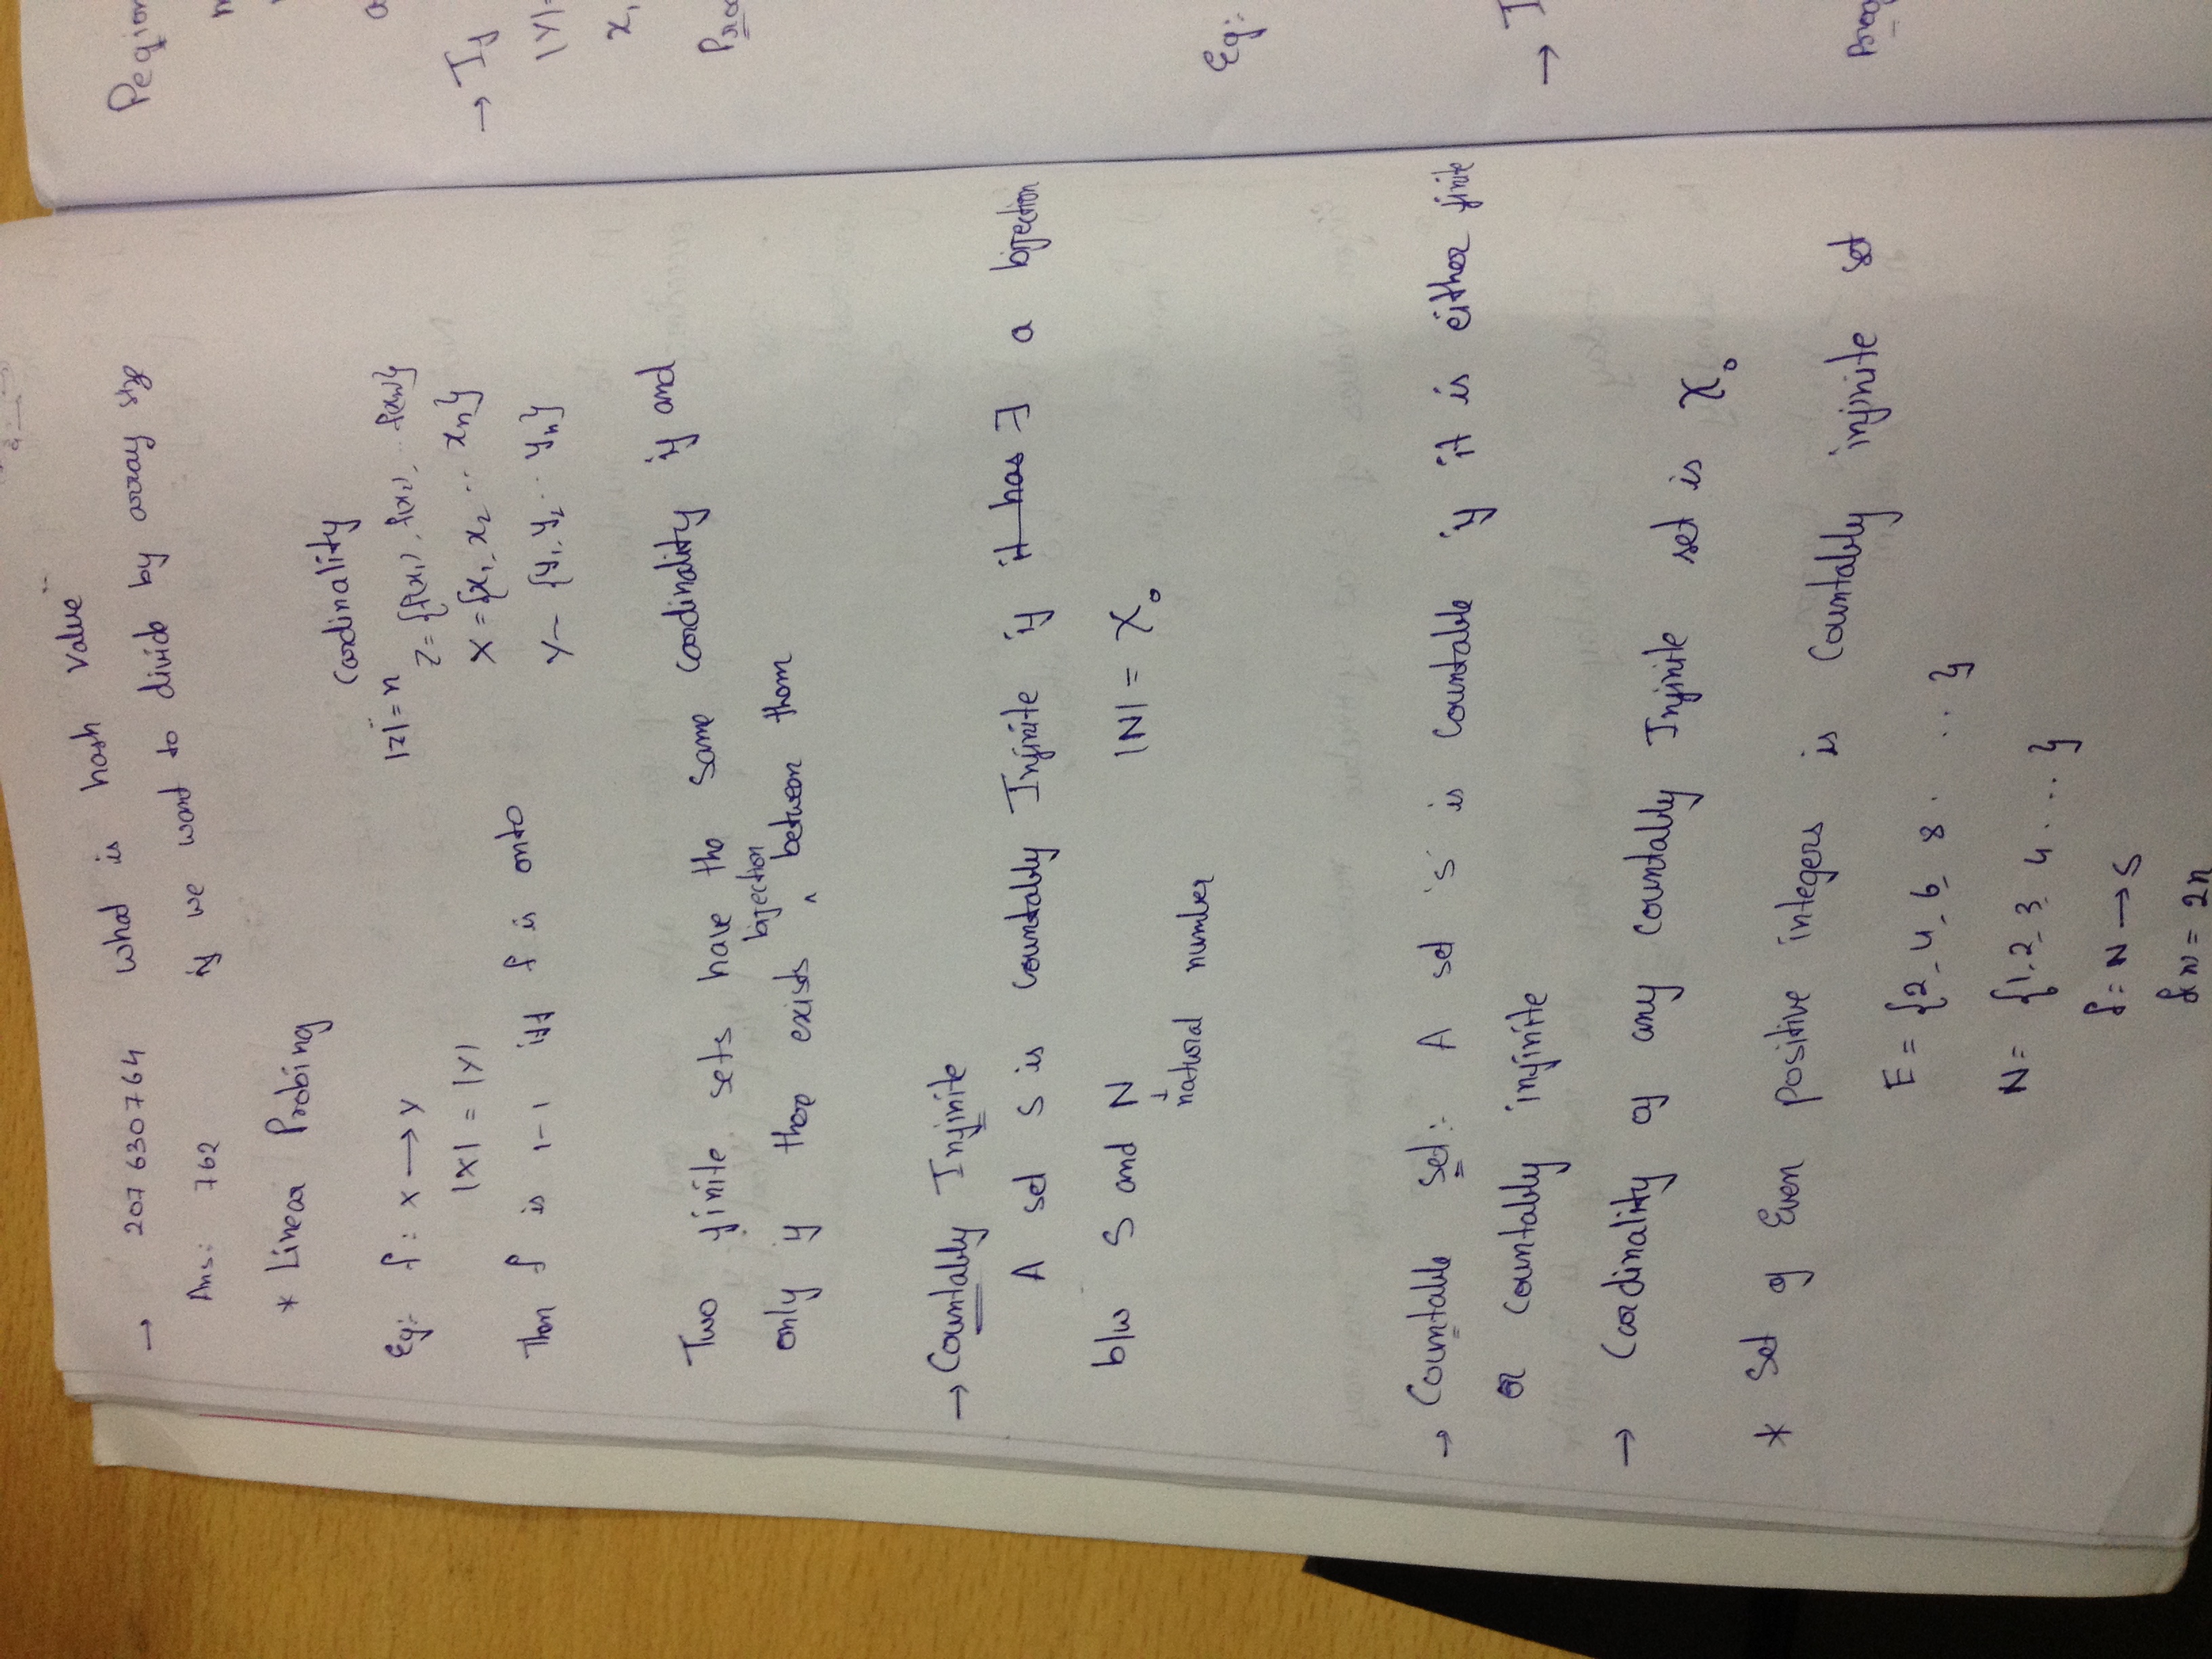 → 207630764 what is hash value
Ans: 762 if we want to divide by array size
* Linear Probing
Cardinality
Eg: f: X → Y |Z| = n Z = {f(x₁), f(x₂), ... f(xn)}
|X| = |Y| X = {x₁, x₂ ... xn}
Then f is 1-1 iff f is onto Y - {y₁, y₂ ... yn}
Two finite sets have the same cardinality if and
only if there exists ^ bijection between them
→ Countably Infinite
A set S is countably Infinite if it has ∃ a bijection
b/w S and N |N| = χ₀
↓
natural number
→ Countable set: A set 's' is countable if it is either finite
or countably infinite
→ Cardinality of any countably Infinite set is χ₀
* Set of Even positive integers is Countably infinite set
E = {2, 4, 6, 8 . . . .}
N = {1, 2, 3, 4 . . . . }
f: N → S
f(n) = 2n
Pegion
→ If
|Y| =
x₁
Eg:
→ I